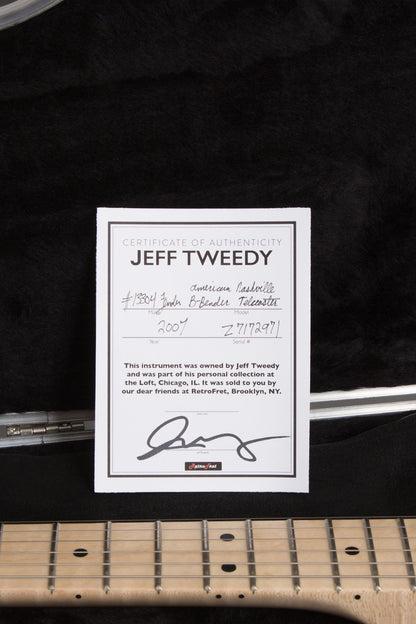 CERTIFICATE OF AUTHENTICITY
JEFF TWEEDY
American Nashville
#13304 Fender B-Bender Telecaster
Make Model
2007 Z7172971
Year Serial #
This instrument was owned by Jeff Tweedy
and was part of his personal collection at
the Loft, Chicago, IL. It was sold to you by
our dear friends at RetroFret, Brooklyn, NY.
RetroFret